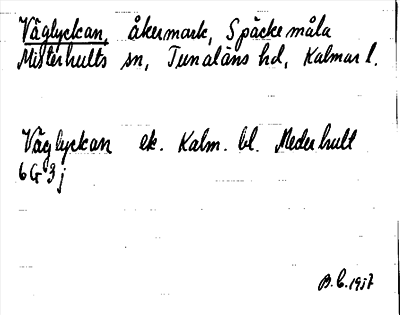 Våglyckan, åkermark, Späckemåla
Misterhults sn, Tunaläns hd, Kalmar l.
Våglyckan ek. Kalm. bl. Mederhult
6G3j
B.C. 1957